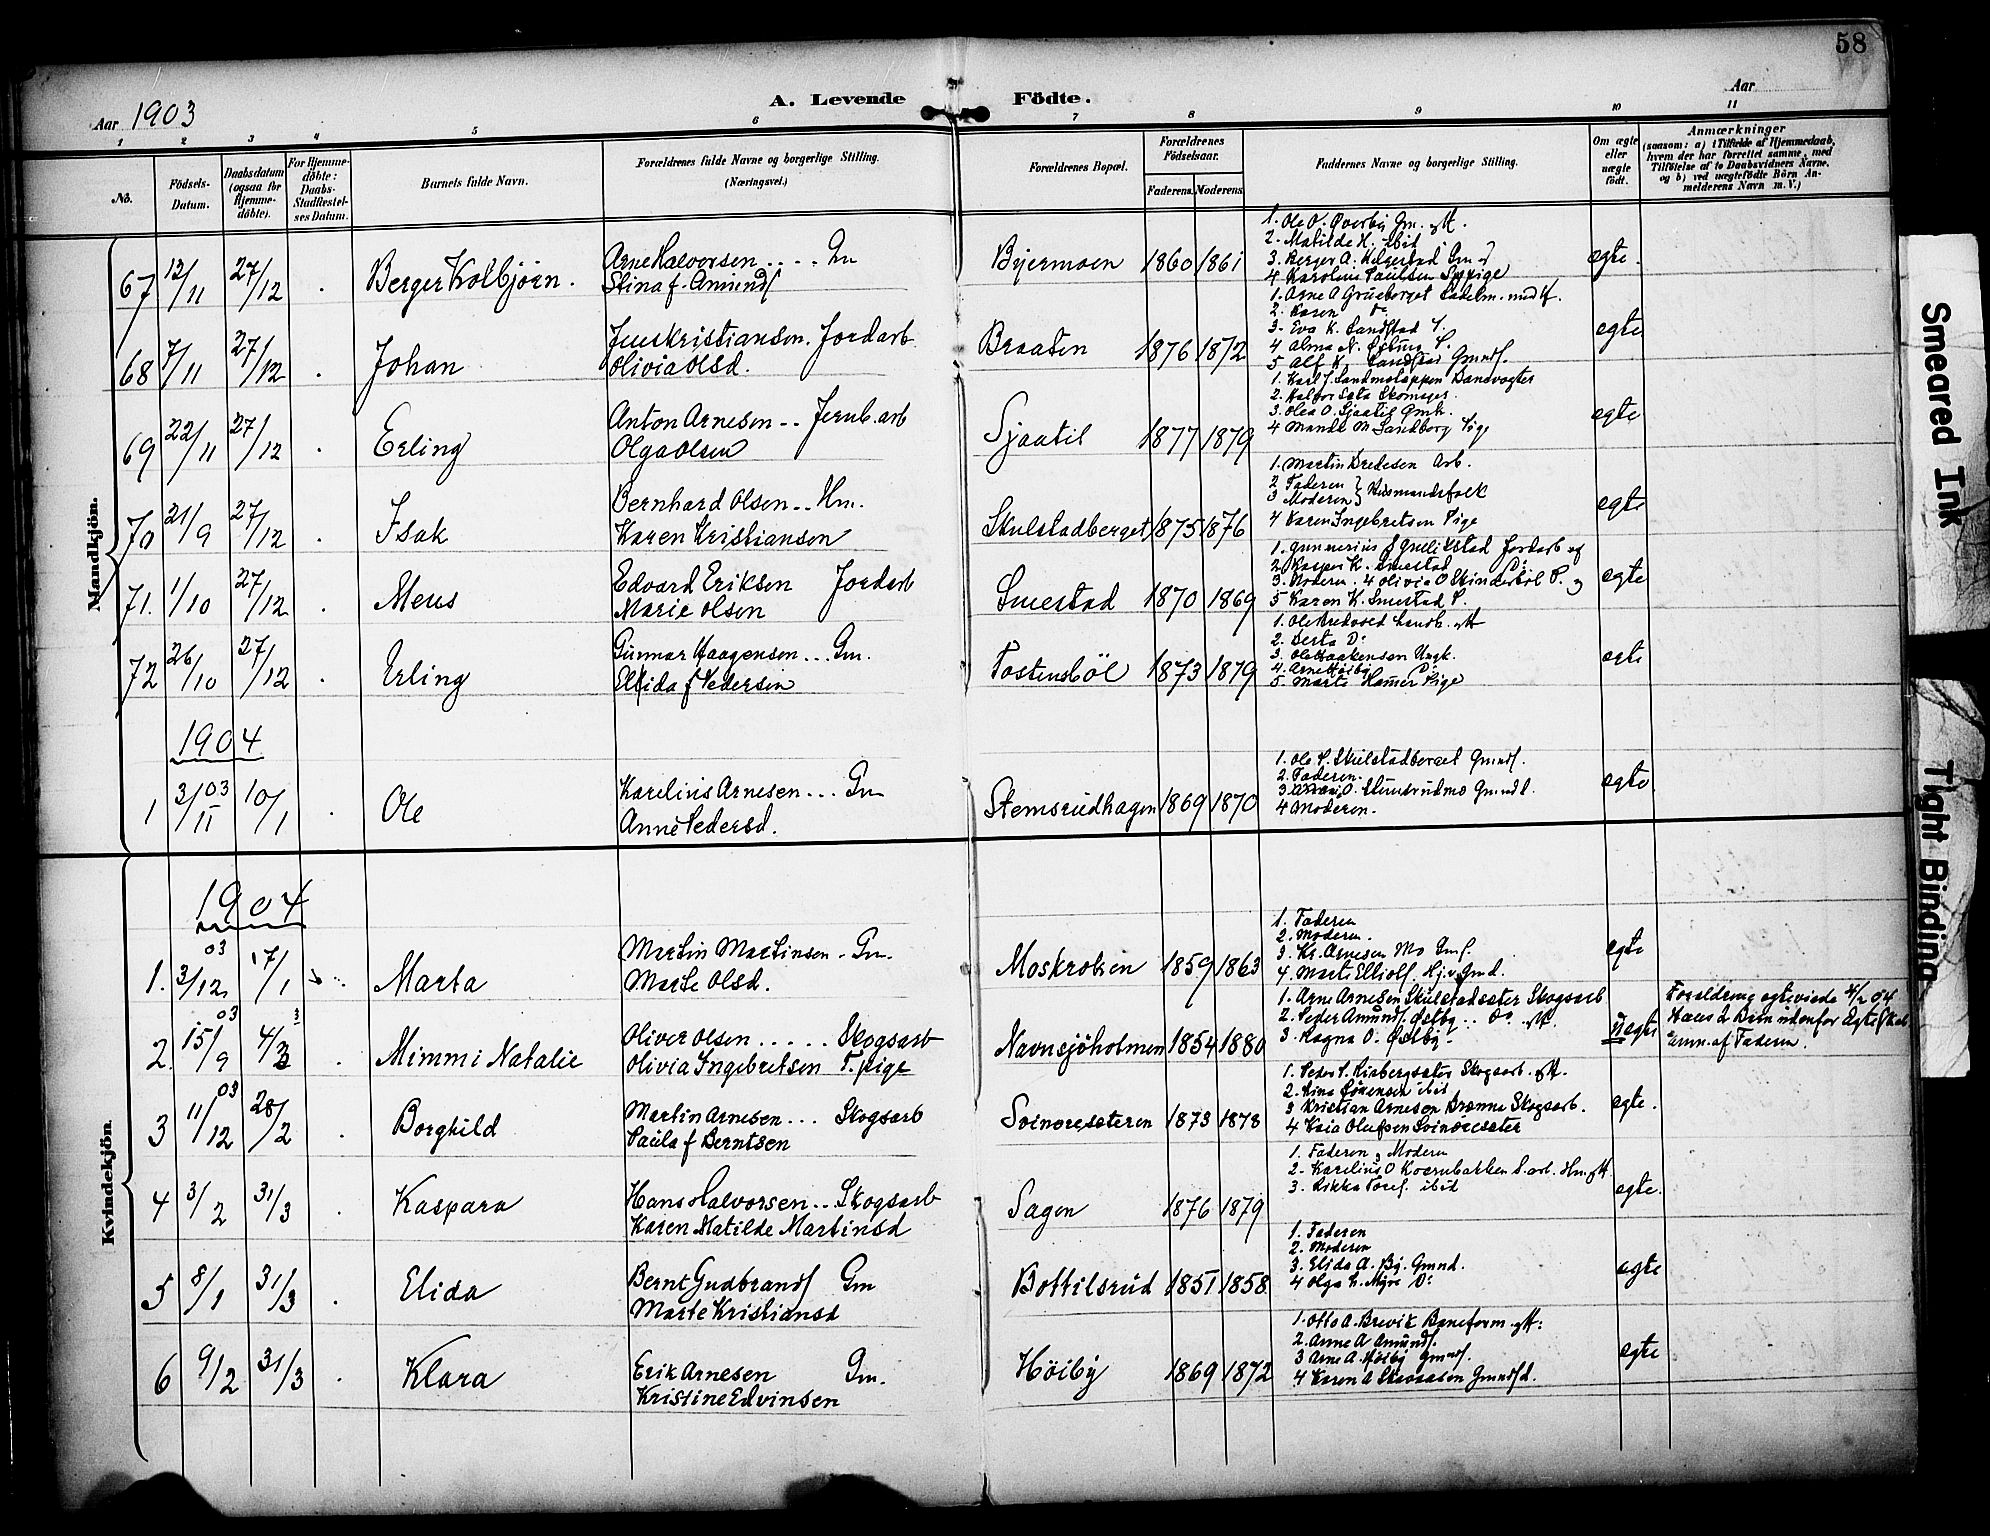 58
Aar 1903
A. Levende Födte.
Aar
1 2 3 4 5 6 7 8 9 10 11
No.
Födsels-Datum.
Daabsdatum (ogsaa for Hjemme-döbte).
For Hjemme-döbte: Daabs-Stadfæstel-ses Datum.
Barnets fulde Navn.
Forældrenes fulde Navne og borgerlige Stilling. (Næringsvei.)
Forældrenes Bopæl.
Forældrenes Födselsaar.
Faderens. Moderens.
Faddernes Navne og borgerlige Stilling.
Om ægte eller uægte födt.
Anmærkninger
(saasom: a) i Tilfælde af Hjemmedaab, hvem der har forrettet samme, med Tilföielse af to Daabsvidners Navne, og b) ved uægtefödte Börn An-melderens Navn m. V.)
Mandkjön.
67 12/11 27/12 Berger Kolbjörn.
Arne Halvorsen .... Gm
Stina f. Amunds
Bjermoen 1860 1861
1. Ole O. Overby Gm. og H.
2. Matilde K. ibid
3. Berger A. Helgestad Gm
4. Karoline Paulsen Pige
egte.
68 7/11 27/12 Johan
Jens Kristiansen. Jordarb
Olivia Olsd.
Braaten 1876 1872
1. Arne A Grueberget Sadelm. med H.
2. Karen Do
3. Eva K. Sandstad
4 Alma N.
5 Alf K. Sandstad Gmands.
egte
69 22/11 27/12 Erling
Anton Arnesen .. Jernb. arb
Olga Olsen
Sjaatil 1877 1879
1. Karl J. Sandmotappen Banevogter
2. Halvor Sata Skomager.
3. Olea O. Sjaatil Gmk.
4 Mande M Sandberg Pige
egte
70 21/9 27/12 Isak
Bernhard Olsen .. Hm.
Karen Kristiansen
Skulstadberget 1875 1876
1. Martin Bredesen Arb.
2 Faderen
3 Moderen } Husmandsfolk
4 Karen Ingebretsen Pige
egte
71. 1/10 27/12 Meus
Edvard Eriksen Jordarb
Marie Olsen
Smestad 1870 1869
1. Gunnerius J Gullikstad Jordarb og
2. Kasper K. Smestad Do
3. Moderen. 4 Olivia O Skinderböl P. og
5 Karen K. Smestad P.
egte
72 26/10 27/12 Erling
Gunnar Haagensen ... Gm.
Elfida f Pedersen
Tostensböl 1873 1879
1. Ole Bredvold Landb. og H
2. Berta Do
3. Ole Haakensen Ungk.
4. Arne Höiby Do
5. Marte Hamer Pige
egte
1904
1 3/11 03 10/1 Ole
Karelius Arnesen ... Gm
Anne Pedersd.
Stemsrudhagen 1869 1870
1. Ole P. Skulstadberget Gmands.
2. Faderen.
3. O. Stemsrudmo Gmand
4 Moderen.
egte
Kvindekjön.
1904
1. 3/12 03 17/1 Marta
Martin Martinsen . Gm.
Marte Olsd.
Moskroken 1859 1863
1. Faderen
2. Moderen.
3. Kr. Arnesen Mo Gms.
4. Marte Elliots. Gmd.
egte
2. 15/9 03 4/3 Mimmi Natalie
Oliver Olsen ..... Skogsarb
Olivia Ingebretsen T. pige
Navnsjöholmen 1854 1880
1. Arne Arnesen Skulstadsæter Skogsarb
2. Peder Amunds. Östby .. Do og H.
3. Ragna O. Östby.
uegte
Forældrene egteviede 4/2 04
Hans 2 Barn udenfor Ægteskab
Anm. af Faderen.
3 11/12 03 28/2 Borghild
Martin Arnesen ... Skogsarb
Paula f Berntsen
Svinoresæteren 1873 1878
1. Peder P. Risbergsæter Skogsarb. og H.
2. Nina Sörensen ibid
3 Kristian Arnesen Brænne Skogsarb.
4 Kaia Olufsen Svinoresæter
egte.
4 3/2 31/3 Kaspara
Hans Halvorsen .. Skogsarb
Karen Matilde Martinsd
Sagen 1876 1879
1. Faderen, Moderen
2. Karelius O Kvernbakken S. arb. Hm og H
3. Rikka Toref. ibid
egte.
5 8/1 31/3 Elida
Bernt Gudbrands Gm
Marte Kristiansd
Bottilsrud 1851 1858
1. Faderen
2. Moderen
3. Elida A. By. Gmnd.
4 Olga L. Myre Do
egte
6 9/2 31/3 Klara
Erik Arnesen Gm.
Kristine Edvinsen
Höiby 1869 1872
1. Otto A. Brevik Baneform. og H:
2. Arne A Amunds.
3 Arne A. Höiby Gmnds.
4 Karen A Skaaraasen Gmandsd.
egte
Smeared Ink
Tight Binding